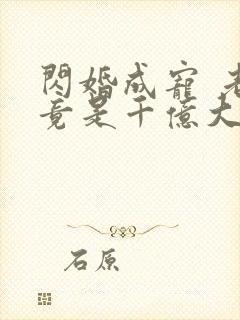 閃婚成寵 老
竟是千億大
石原